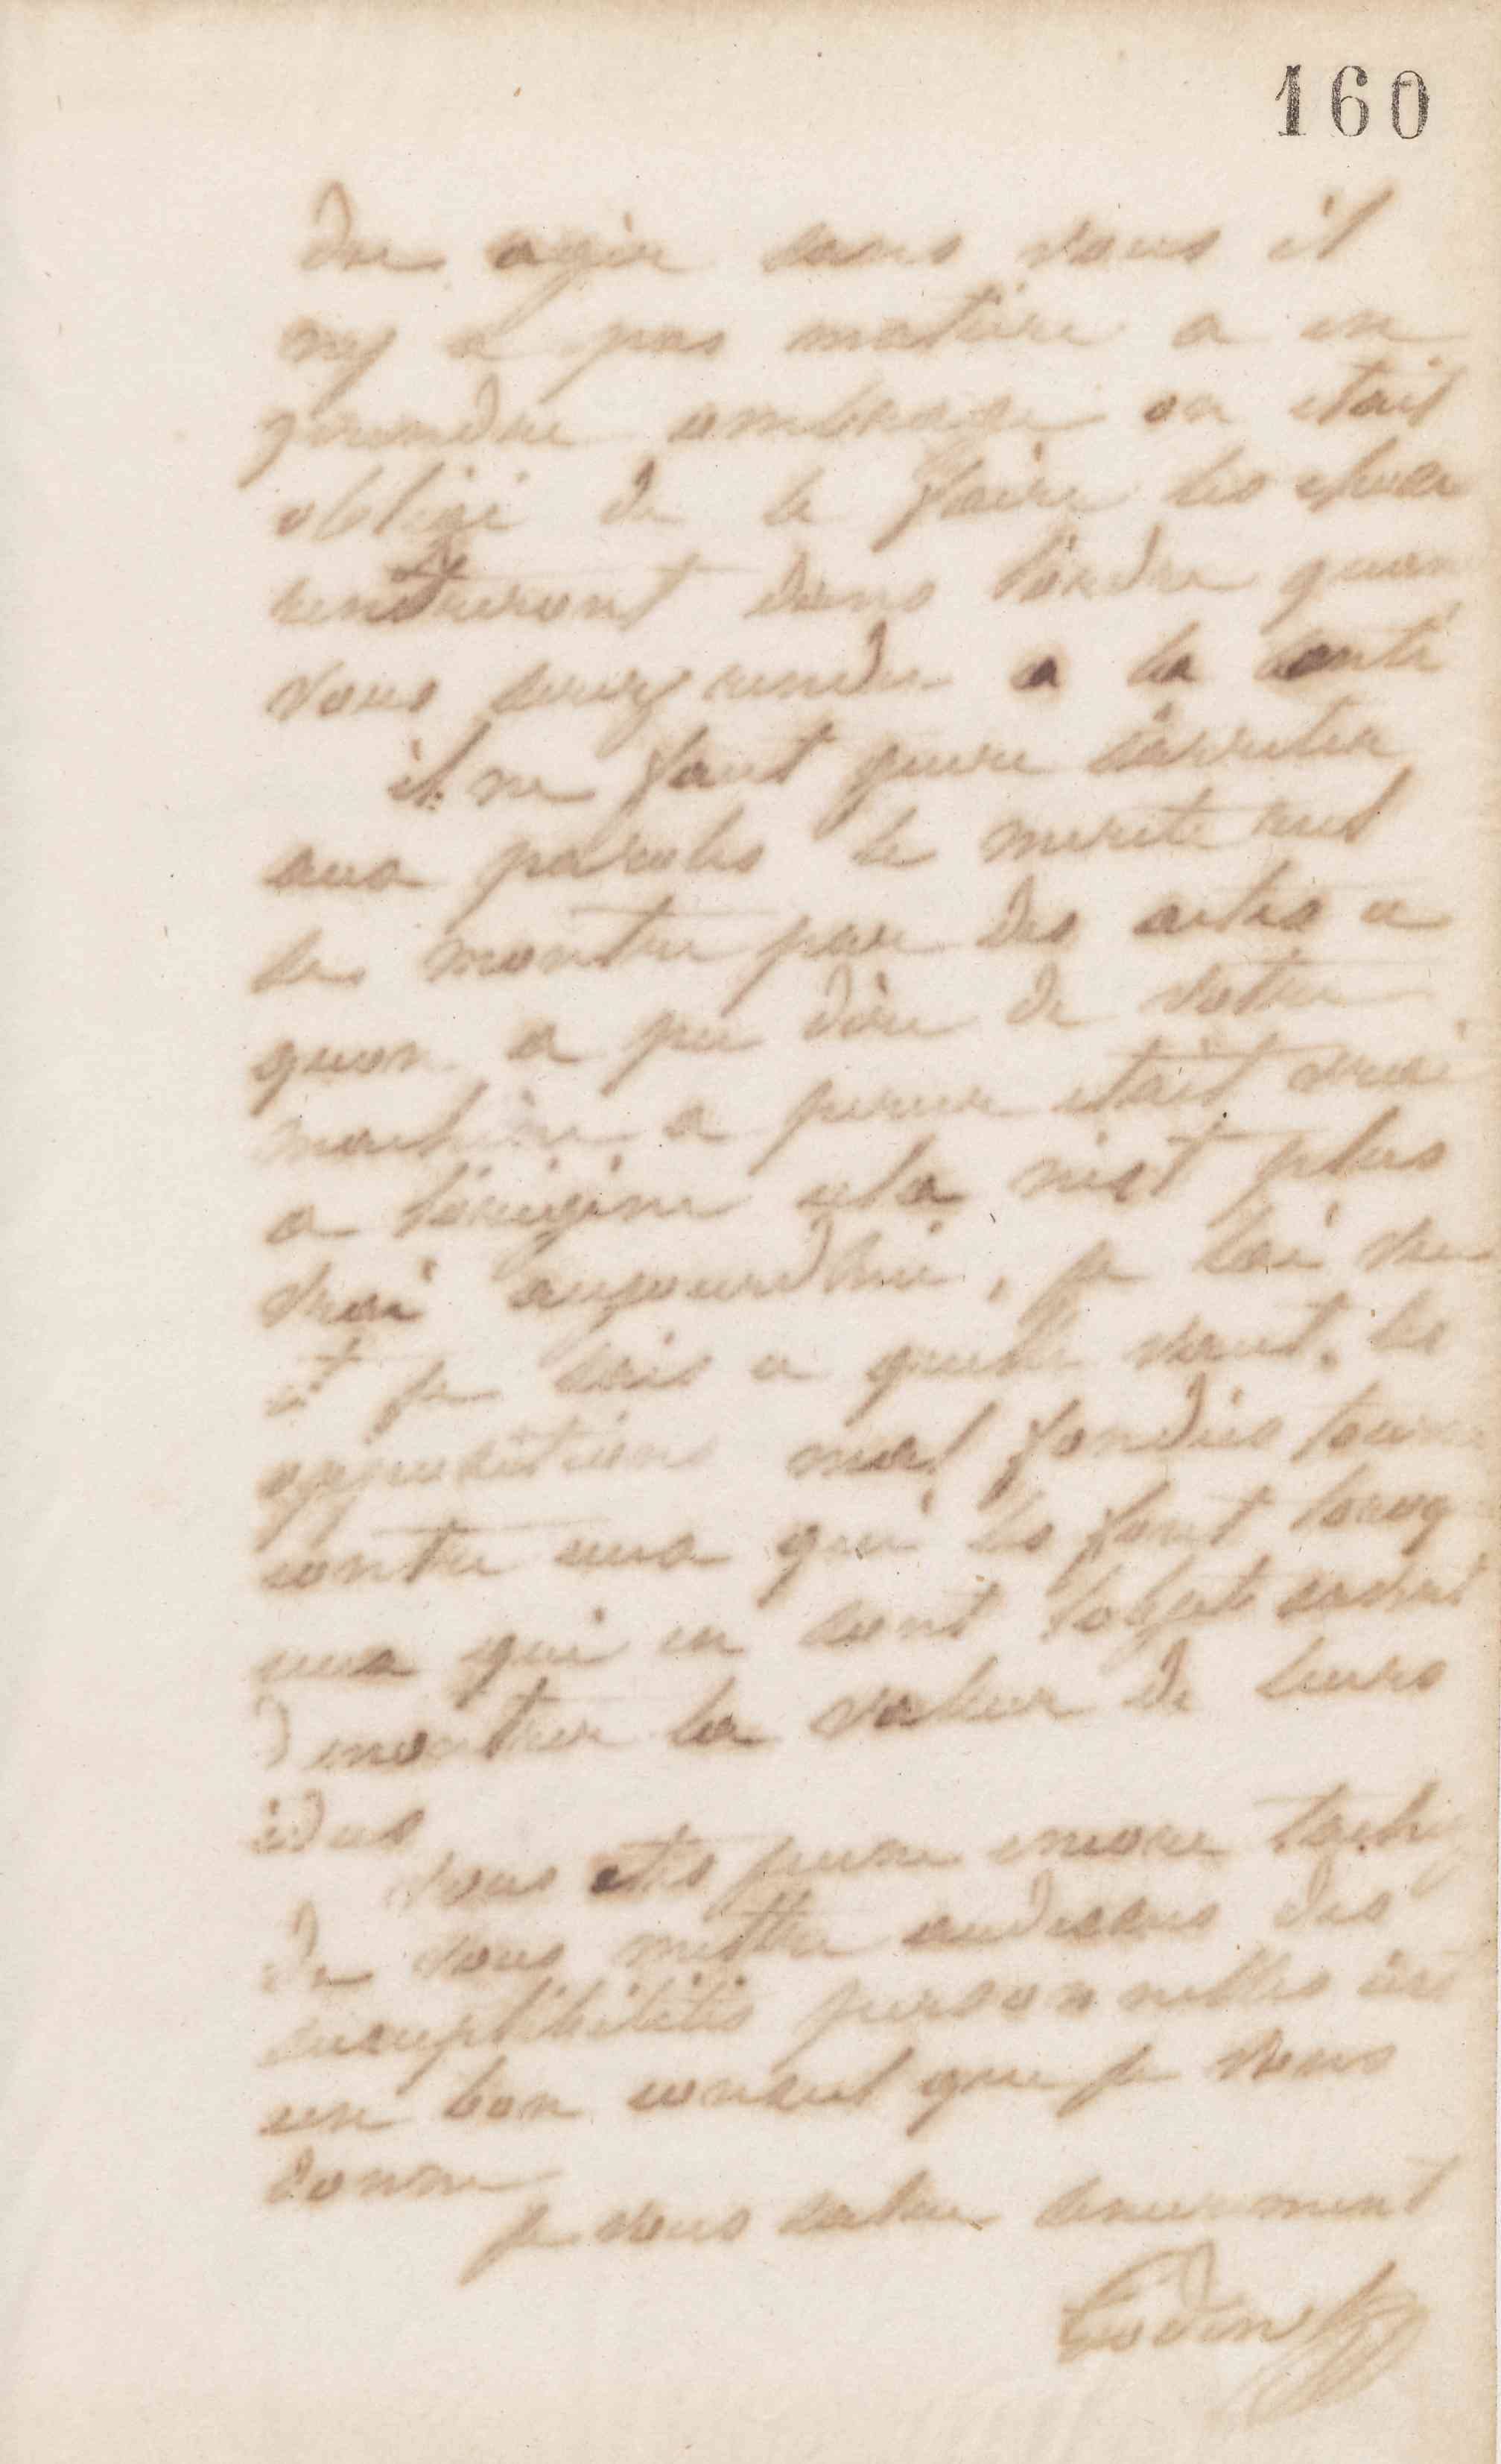 160
du agir sans vous il
ny a pas matiere a en
prendre ombrage on etait
obligé de le faire les choses
rentreront dans lordre quan
vous serez rendu a la santé
il ne faut guere sarreter
aux paroles le merite reel
se montre par des actes ce
quon a pu dire de votre
machine a percer etait vrai
a lorigine cela nest plus
vrai aujourdhui, je lai vu
et je sais ce quelle vaut. les
oppositions mal fondées tourn
contre ceux qui les font lorsq
ceux qui en sont lobjet savent
demontrer la valeur de leurs
idees
vous etes jeune encore tachez
de vous mettre audessus des
susceptibilités personnelles cest
un bon conseil que je vous
donne
je vous salue sincerement
Godin